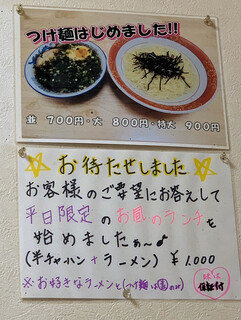 つけ麺はじめました!!
並 700円・大 800円・特大 900円
お待たせしました
お客様のご要望にお答えして
平日限定のお昼のランチを
始めましたぁ〜♪
(半チャーハン+ラーメン) ¥1,000
※お好きなラーメンと(つけ麺は
味は
保証付